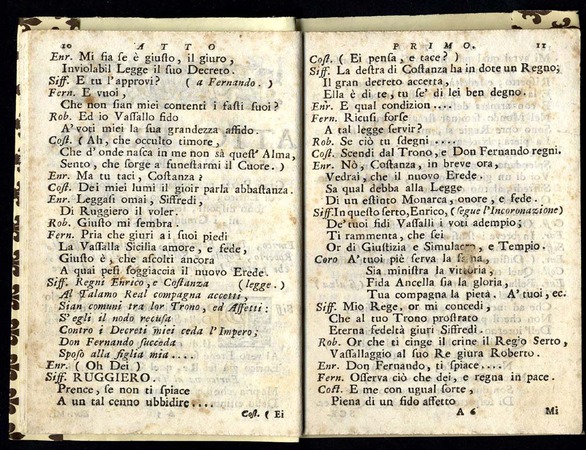 10 ATTO
Enr. Mi fia se è giusto, il giuro,
Inviolabil Legge il suo Decreto.
Siff. E tu l'approvi? (a Fernando.)
Fern. E vuoi,
Che non sian miei contenti i fasti suoi?
Rob. Ed io Vassallo fido
A' voti miei la sua grandezza affido.
Cost. (Ah, che occulto timore,
Che d'onde nasca in me non sà quest' Alma,
Sento, che sorge a funestarmi il Cuore.)
Enr. Ma tu taci, Costanza?
Cost. Dei miei lumi il gioir parla abbastanza.
Enr. Leggasi omai, Siffredi,
Di Ruggiero il voler.
Rob. Giusto mi sembra.
Fern. Pria che giuri a i suoi piedi
La Vassalla Sicilia amore, e fede,
Giusto è, che ascolti ancora
A quai pesi soggiaccia il nuovo Erede.
Siff. Regni Enrico, e Costanza (legge.)
Al Talamo Real compagna accetti,
Sian comuni tra lor Trono, ed Affetti:
S'egli il nodo recusa
Contro i Decreti miei ceda l'Impero;
Don Fernando succeda
Sposo alla figlia mia....
Enr. (Oh Dei)
Siff. RUGGIERO.
Prence, se non ti spiace
A un tal cenno ubbidire....
Cost. (Ei
PRIMO. 11
Cost. (Ei pensa, e tace?)
Siff. La destra di Costanza ha in dote un Regno;
Il gran decreto accetta,
Ella è di te, tu se' di lei ben degno.
Enr. E qual condizion....
Fern. Ricusi forse
A tal legge servir?
Rob. Se ciò tu sdegni....
Cost. Scendi dal Trono, e Don Fernando regni.
Enr. Nò, Costanza, in breve ora,
Vedrai, che il nuovo Erede
Sa qual debba alla Legge
Di un estinto Monarca, onore, e fede.
Siff. In questo serto, Enrico, (segue l'Incoronazione)
De' tuoi fidi Vassalli i voti adempio;
Ti rammenta, che sei
Or di Giustizia e Simulacro, e Tempio.
Coro A' tuoi piè serva la fama,
Sia ministra la vittoria,
Fida Ancella sia la gloria,
Tua compagna la pietà. A' tuoi, ec.
Siff. Mio Rege, or mi concedi,
Che al tuo Trono prostrato
Eterna fedeltà giuri Siffredi.
Rob. Or che ti cinge il crine il Regio Serto,
Vassallaggio al suo Re giura Roberto.
Enr. Don Fernando, ti spiace....
Fern. Osserva ciò che dei, e regna in pace.
Cost. E me con ugual sorte,
Piena di un fido affetto
A 6 Mi